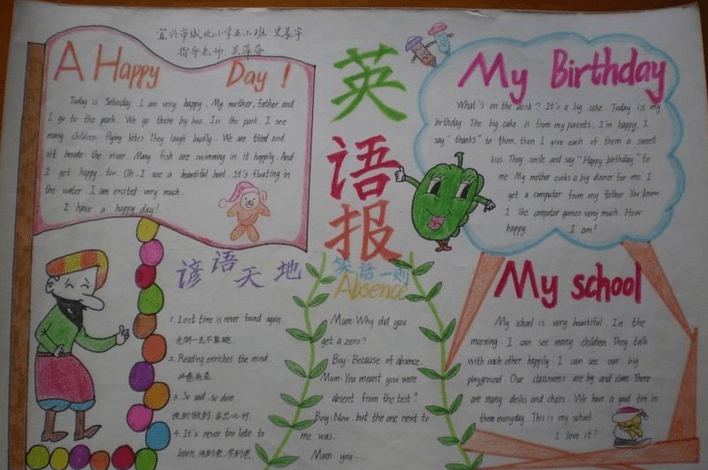 宜兴市城北小学
指导老师
A Happy Day!
Today is Saturday. I am very happy. My mother, father and
I go to the park. We go there by bus. In the park, I see
many children flying kites. They laugh loudly. We are tired and
sit beside the river. Many fish are swimming in it happily. And
I get happy, too. Oh, I see a beautiful boat. It's floating in
the water. I am excited very much.
I have a happy day!
英
语
报
My Birthday
What's on the desk? It's a big cake. Today is my
birthday. The big cake is from my parents, I'm happy. I
say "thanks" to them, then I give each of them a sweet
kiss. They smile and say "Happy birthday" to
me. My mother cooks a big dinner for me. I
get a computer from my father. You know
I like computer games very much. How
happy I am!
谚语天地
1. Lost time is never found again.
2. Reading enriches the mind.
开卷有益
3. So said, so done.
说到做到,
4. It's never too late to
learn.
笑话一则
Absence
Mum: Why did you
get a zero?
Boy: Because of absence.
Mum: You meant you were
absent from the test?
Boy: No, but the one next to
me was.
Mum: you.....
My school
My school is very beautiful. In the
morning, I can see many children. They talk
with each other happily. I can see our big
playground. Our classrooms are big and clean. There
are many desks and chairs. We have a good time in
them everyday. This is my school.
I love it!